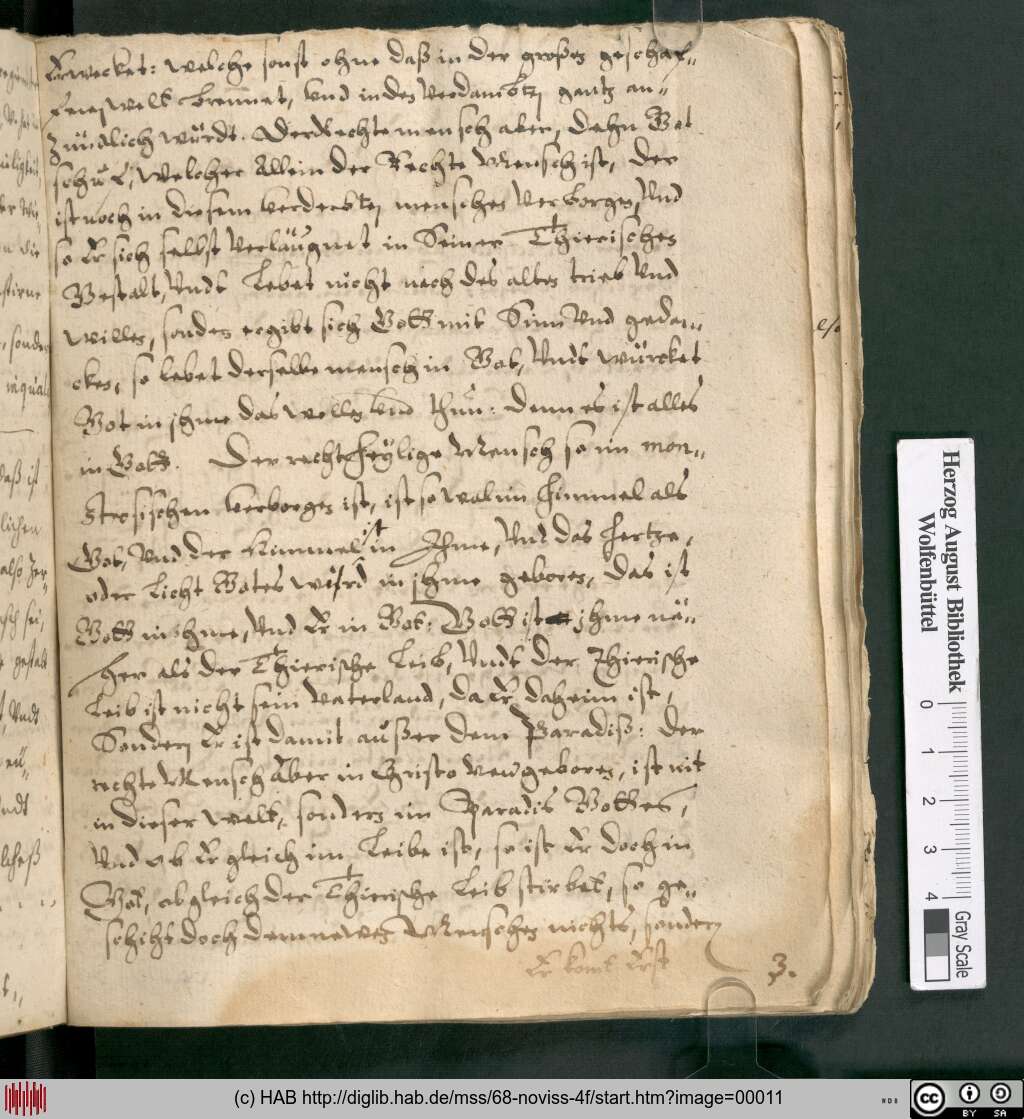 Erwecket: welche sonst ohne daß in der großen geschaf„
fenen welt brennet, Vnd in des verdambten gantz an„
zündlich würdt. Der Rechte mensch aber, dehn Got
schuf, welcher Allein der Rechte Mensch ist, der
ist noch in diesem verderbten menschen verborgen, Und
so Er sich selbst verläugnet in Seiner Thierischen
Gestalt, Undt Lebet nicht nach des alten trieb Und
willen, sonder ergibt sich Gott mit Sinn Und gedan„
cken, so lebet derselbe mensch in Got, Undt würcket
Got in jhme das wollen Und thun: denn es ist alles
in Gott. Der recht heylige Mensch so im mon„
strosischen verborgen ist, ist so wal im himmel als
Got, Und der Himmel ist in Ihme, Und das hertze,
oder Licht Gotes wird in jhme geboren, das ist
Gott in ihme, Und Er in Got: Gott ist jhme nä„
her als der Thierische Leib, Undt der Thierische
Leib ist nicht sein vaterland, da Er daheim ist,
Sondern Er ist damit außer dem Paradiß: der
rechte Mensch Aber in Christo newgeboren, ist nit
in dieser welt, sondern im Paradis Gottes,
Und ob Er gleich im Leibe ist, so ist Er doch in
Got, ob gleich der Thierische Leib stirbet, so ge„
schiht doch dem newen Menschen nichts, sondern
Er komt Erst
3.
Herzog August Bibliothek
Wolfenbüttel
0 1 2 3 4
Gray Scale
(c) HAB http://diglib.hab.de/mss/68-noviss-4f/start.htm?image=00011
WDB
cc BY SA